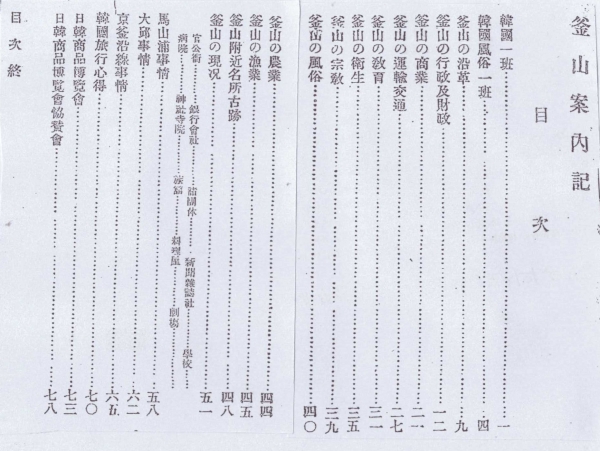 釜山案內記
目次
韓國一班……………一
韓國風俗一班……………四
釜山の沿革……………九
釜山の行政及財政……………一二
釜山の商業……………二一
釜山の運輸交通……………二七
釜山の敎育……………三一
釜山の衛生……………三五
釜山の宗敎……………三九
釜山の風俗……………四〇
釜山の農業……………四四
釜山の漁業……………四五
釜山附近名所古跡……………四八
釜山の現况……………五一
官公衙……銀行會社……諸團体……新聞雜誌社……學校……
病院……神社寺院……旅舘……料理屋……劇塲……
馬山浦事情……………五八
大邱事情……………六二
京釜沿線事情……………六五
韓國旅行心得……………七〇
日韓商品博覽會……………七三
日韓商品博覽會協賛會……………七八
目次終